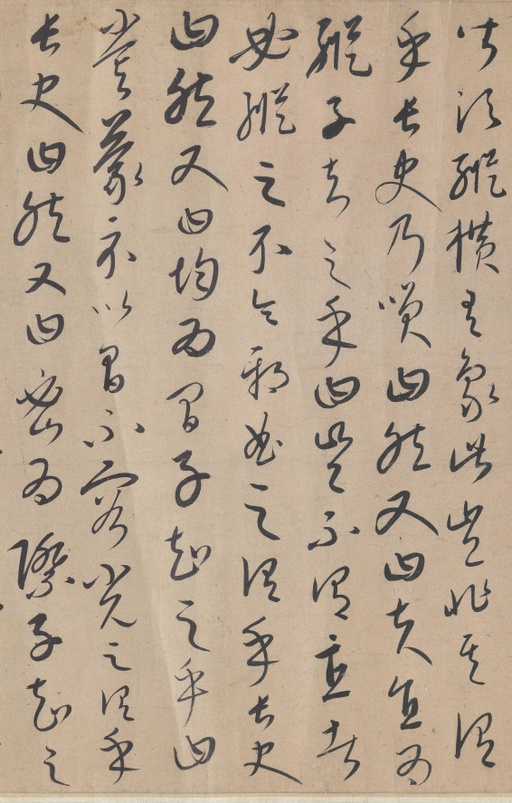 皆須縱橫有象此豈非其謂
乎長史乃咲曰然又曰夫直為
縱子知之乎曰豈不謂直者
必縱之不令邪曲之謂乎長史
曰然又曰均為間子知之乎曰
嘗蒙示以間不容光之謂乎
長史曰然又曰密為際子知之